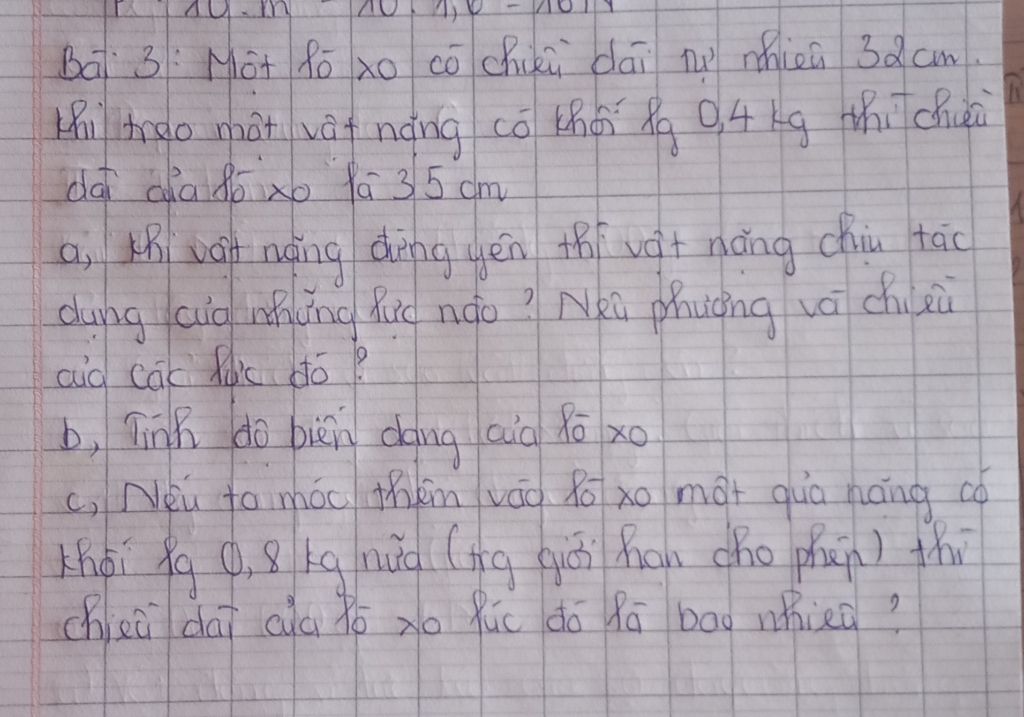 P = 10.m = 10.1,6 = 16N
Bài 3: Một lò xo có chiều dài tự nhiên 32cm.
Khi treo một vật nặng có khối lg 0,4 kg thì chiều
dài của lò xo là 35 cm
a, Khi vật nặng đứng yên thì vật nặng chịu tác
dụng của những lực nào? Nêu phương và chiều
của các lực đó?
b, Tính độ biến dạng của lò xo
c, Nếu ta móc thêm vào lò xo một quả nặng có
khối lg 0,8 kg nữa (trg giới hạn cho phép) thì
chiều dài của lò xo lúc đó là bao nhiêu?